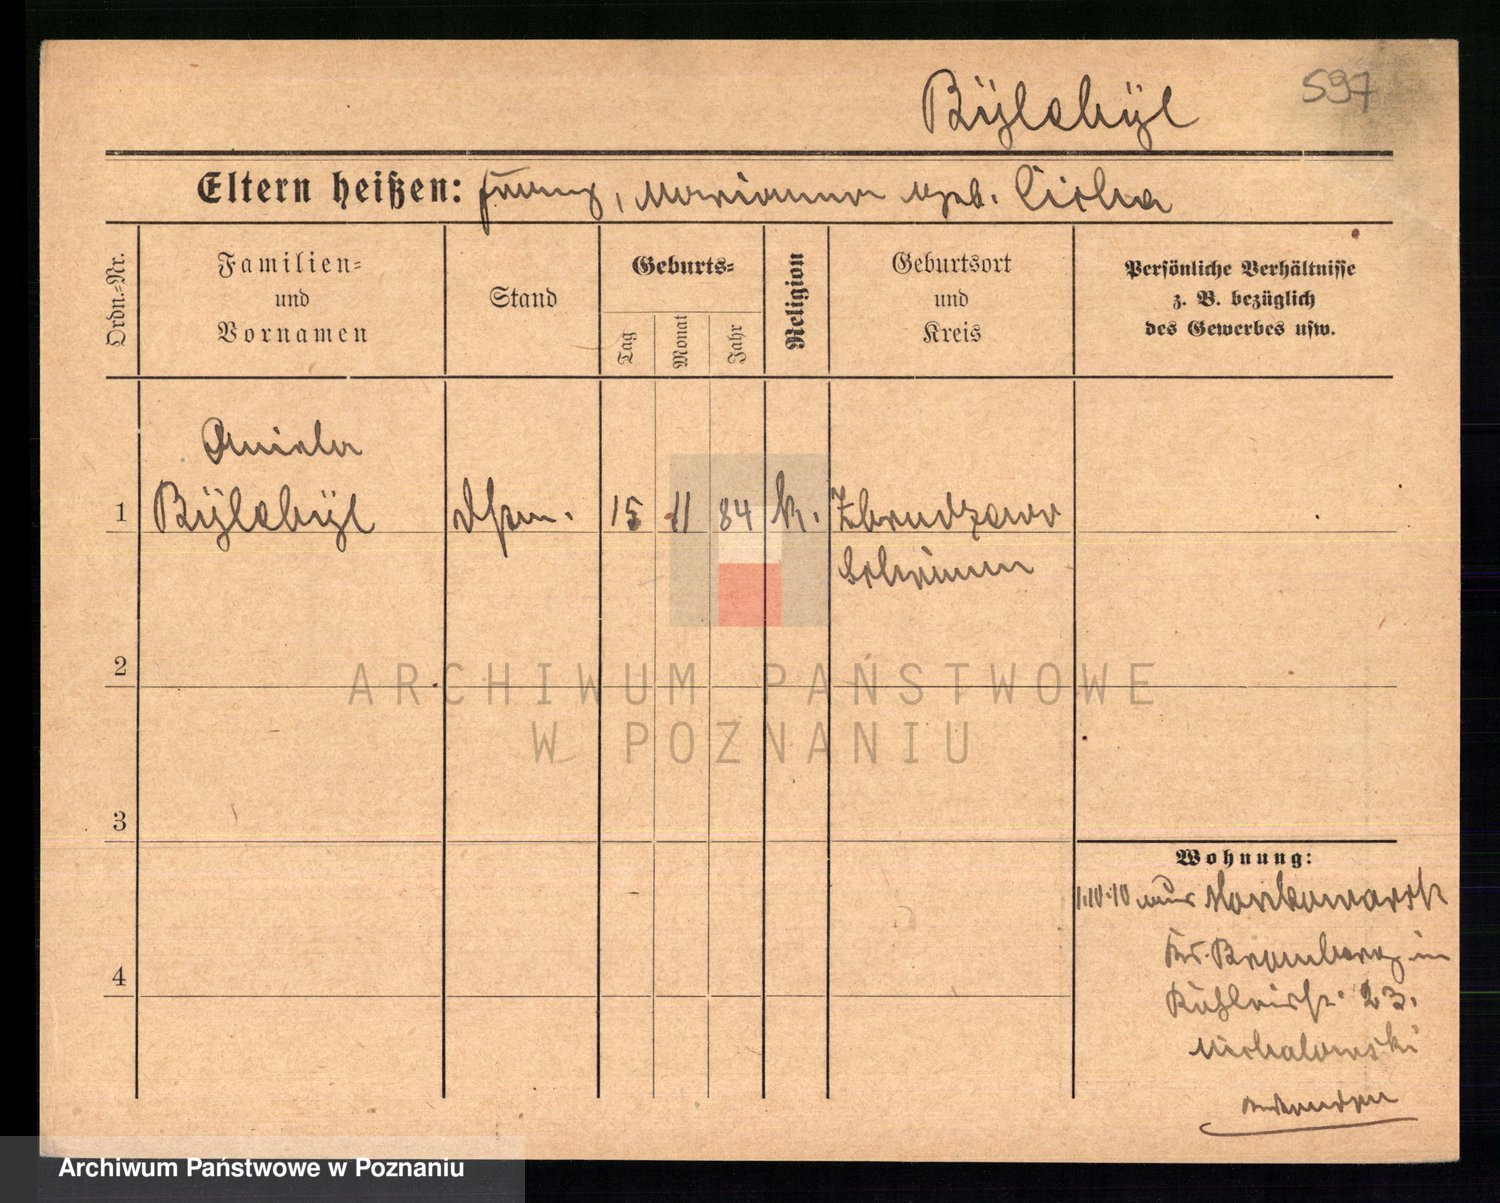 597
Eltern heißen: Franz, Marianna geb. Cicha
Ordn.-Nr.
Familien-
und
Vornamen
Stand
Geburts-
Tag
Monat
Jahr
Religion
Geburtsort
und
Kreis
Persönliche Verhältnisse
z. B. bezüglich
des Gewerbes usw.
Aniela
1 15 11 84 k.
Schrimm
2
3
4
Wohnung:
1.10.10 aus
Kr. Bromberg in
23.
Michalowski
ARCHIWUM PAŃSTWOWE
W POZNANIU
Archiwum Państwowe w Poznaniu